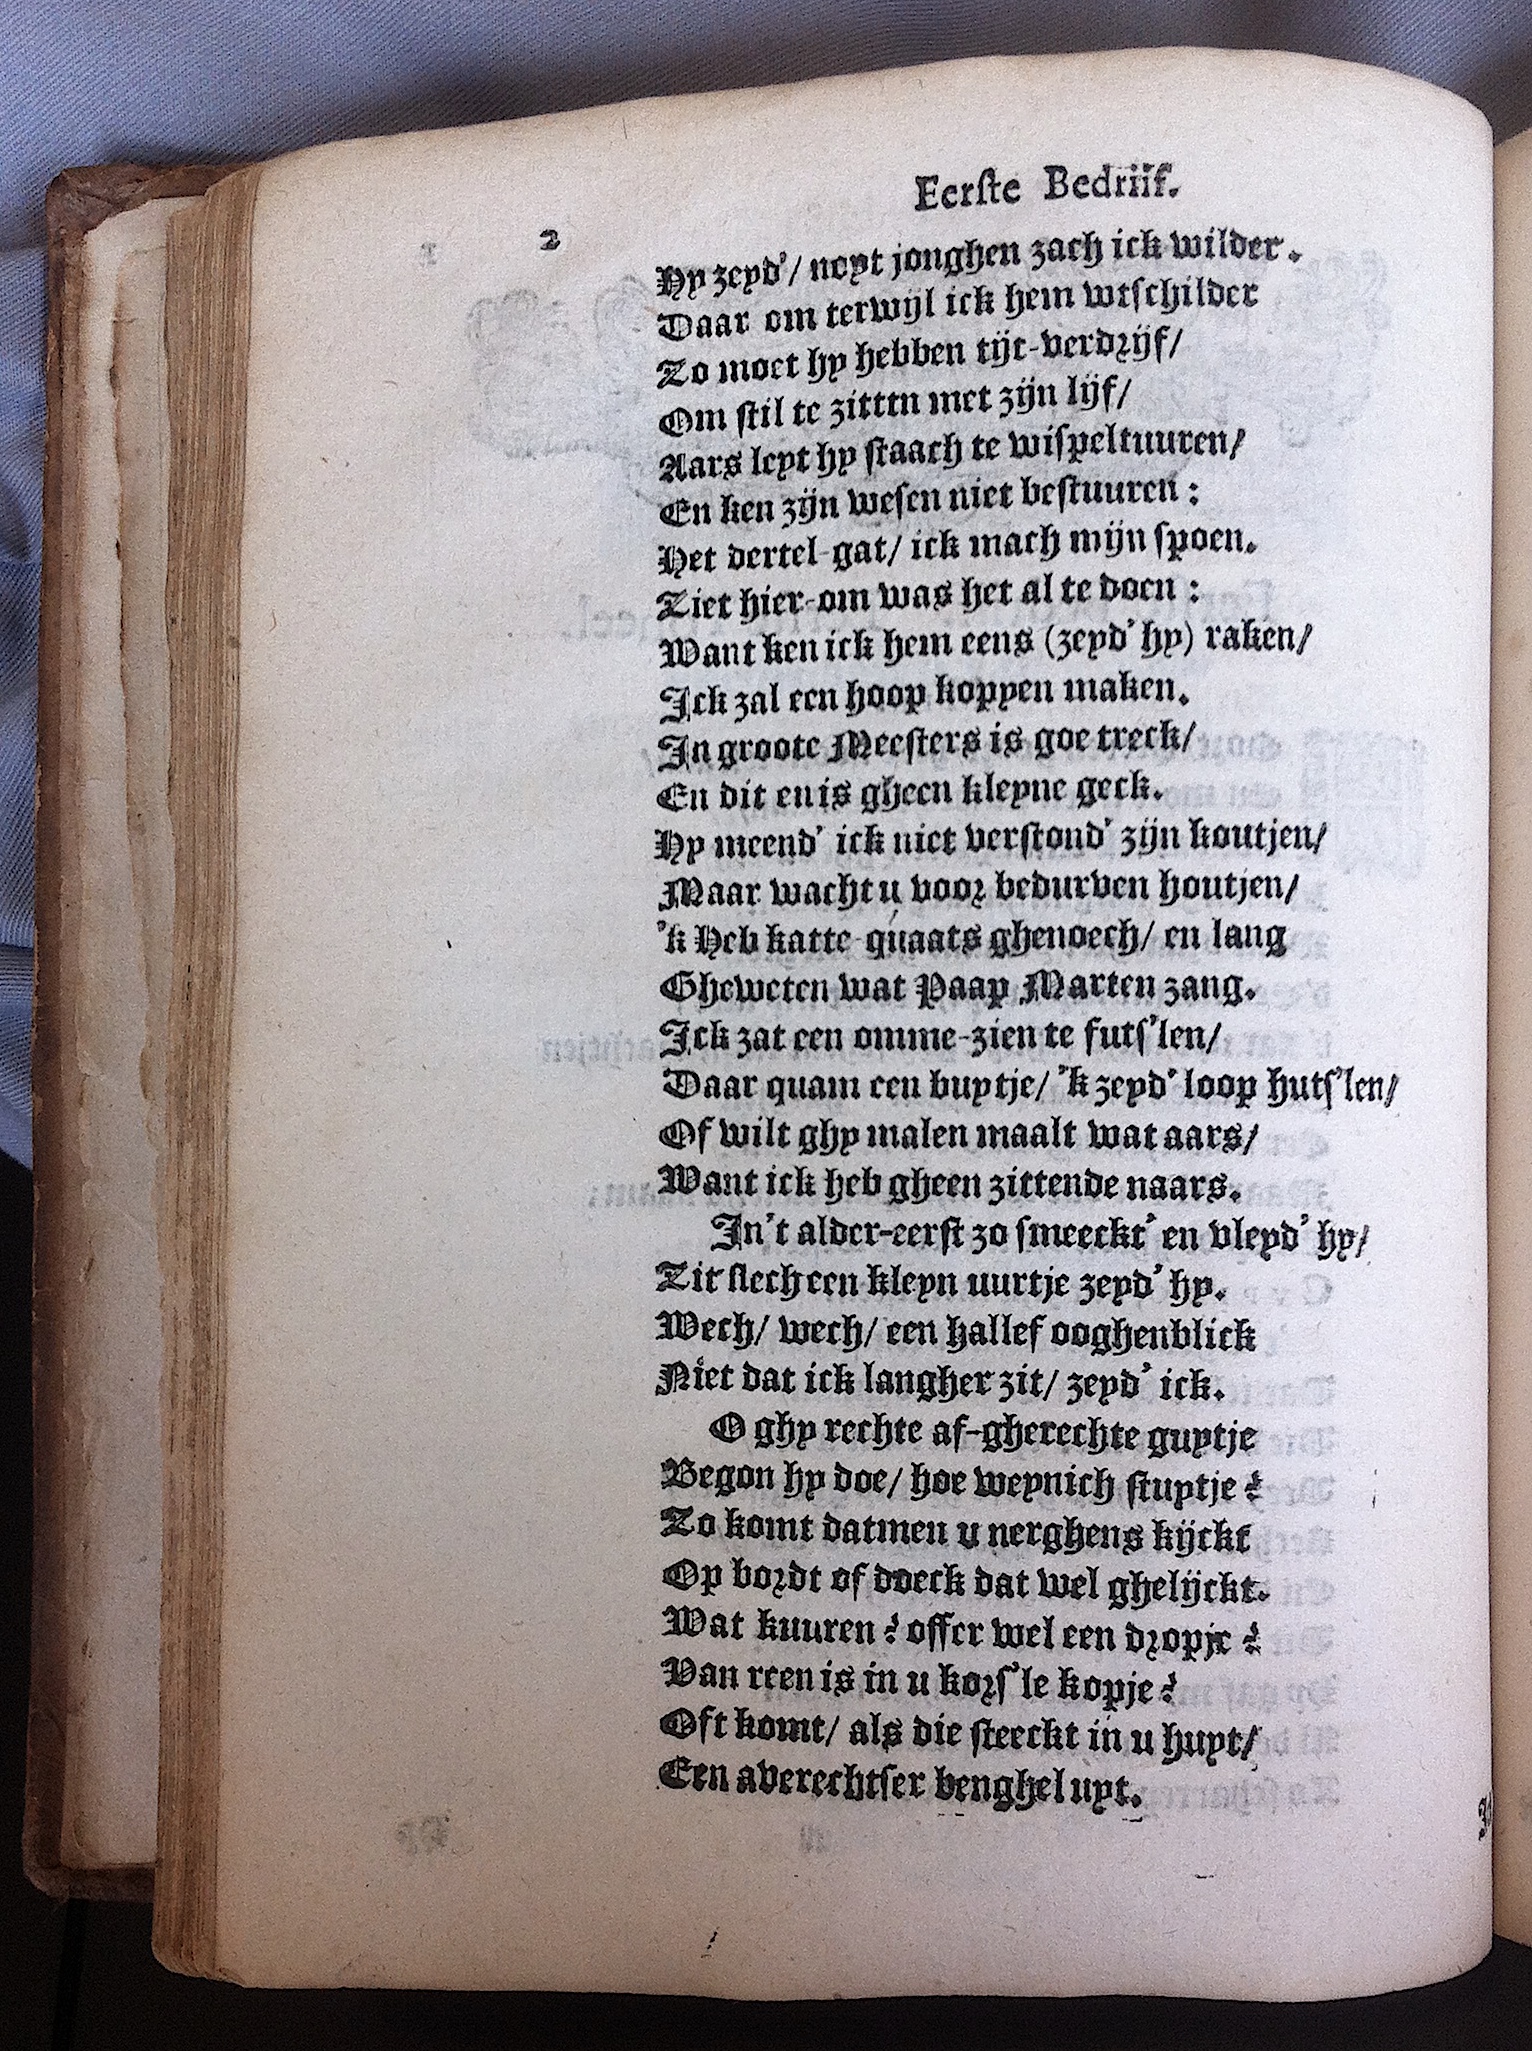 Eerſte Bedriif.
2
Hy zeyd'/ noyt jonghen zach ick wilder.
Daar om terwijl ick hem wtſchilder
Zo moet hy hebben tijt-verdrijf/
Om ſtil te zitttn met zijn lijf/
Aars leyt hy ſtaach te wiſpeltuuren/
En ken zijn weſen niet beſtuuren:
Het dertel-gat/ ick mach mijn ſpoen.
Ziet hier-om was het al te doen:
Want ken ick hem eens (zeyd' hy) raken/
Ick zal een hoop koppen maken.
In groote Meeſters is goe treck/
En dit en is gheen kleyne geck.
Hy meend' ick niet verſtond' zijn koutjen/
Maar wacht u voor bedurven houtjen/
'k Heb katte-quaats ghenoech/ en lang
Gheweten wat Paap Marten zang.
Ick zat een omme-zien te futſ'len/
Daar quam een buytje/ 'k zeyd' loop hutſ'len/
Of wilt ghy malen maalt wat aars/
Want ick heb gheen zittende naars.
In't alder-eerſt zo ſmeeckt' en vleyd' hy/
Zit ſlech een kleyn uurtje zeyd' hy.
Wech/ wech/ een hallef ooghenblick
Niet dat ick langher zit/ zeyd' ick.
O ghy rechte af-gherechte guytje
Begon hy doe/ hoe weynich ſtuytje?
Zo komt datmen u nerghens kijckt
Op bordt of doeck dat wel ghelijckt.
Wat kuuren? offer wel een dropje?
Van reen is in u korſ'le kopje?
Oft komt/ als die ſteeckt in u huyt/
Een averechtſer benghel uyt.